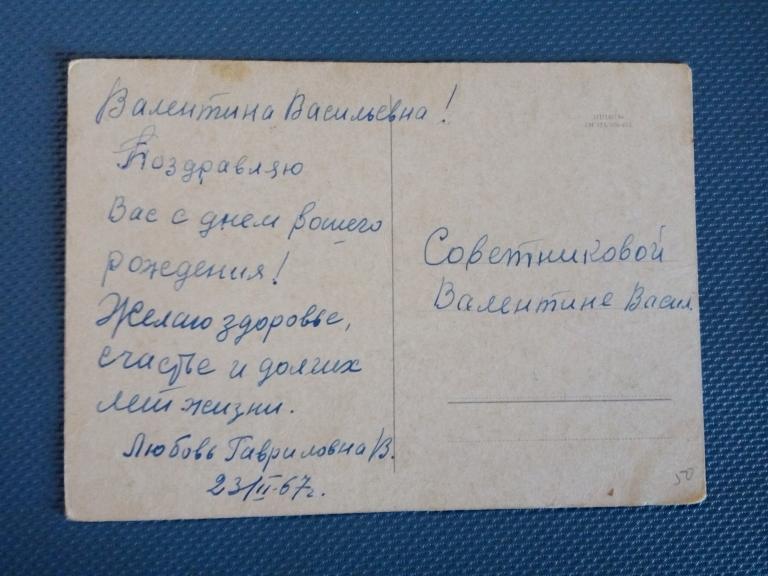 Валентина Васильевна!
Поздравляю
Вас с днем вашего
рождения!
Желаю здоровье,
счастье и долгих
лет жизни.
Любовь Гавриловна В.
23/II-67г.
Советниковой
Валентине Васил.
50